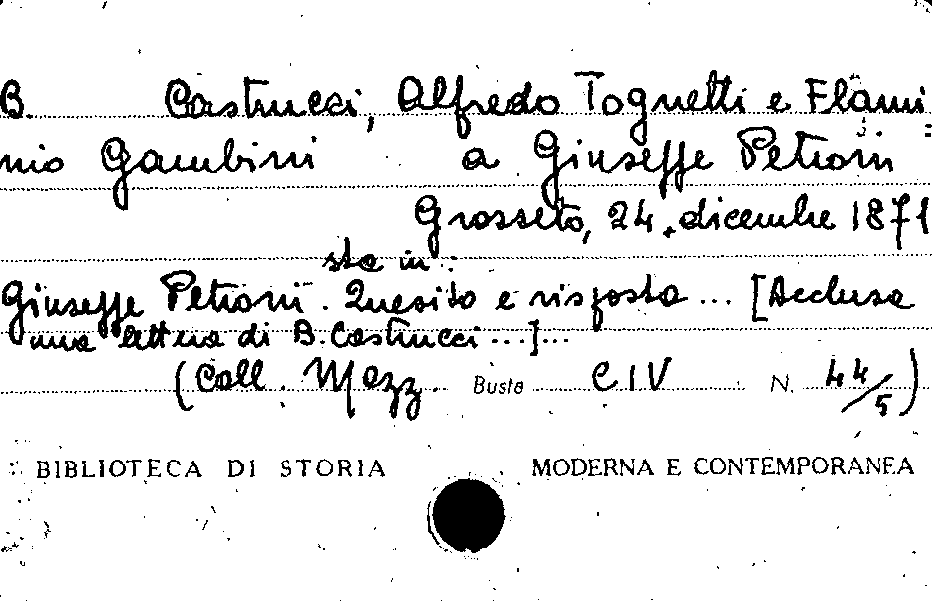 B. Castrucci, Alfredo Tognetti e Flami=
nio Gambini a Giuseppe Petroni
Grosseto, 24 dicembre 1871
sta in:
Giuseppe Petroni. Quesito e risposta ... [Acclusa
una lettera di B. Castrucci ...]...
(Coll. Mazz. Busta CIV N. 44/5)
BIBLIOTECA DI STORIA MODERNA E CONTEMPORANEA